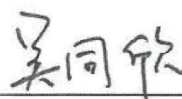 吴同欣